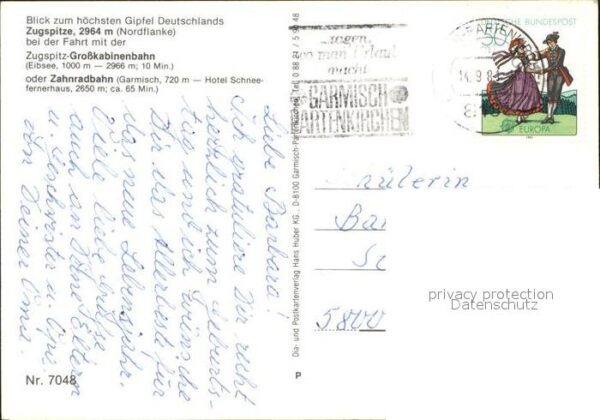 Blick zum höchsten Gipfel Deutschlands
Zugspitze, 2964 m (Nordflanke)
bei der Fahrt mit der
Zugspitz-Großkabinenbahn
(Eibsee, 1000 m — 2966 m; 10 Min.)
oder Zahnradbahn (Garmisch, 720 m — Hotel Schnee-
fernerhaus, 2650 m; ca. 65 Min.)
Liebe Barbara!
Ich gratuliere Dir recht
herzlich zum Geburts-
tag und ich wünsche
Dir das Allerbeste für
das neue Lebensjahr.
Viele liebe Grüße
auch an Deine Eltern
u. Geschwister u. Opi.
von Deiner Oma.
Nr. 7048
Dia- und Postkartenverlag Hans Huber KG., D-8100 Garmisch-Partenkirchen, Tel. 0 88 21 / 5 90 48
P
wo man Urlaub
macht
GARMISCH
PARTENKIRCHEN
DEUTSCHE BUNDESPOST
50
EUROPA
Schülerin
Ba
Sc
5800
privacy protection
Datenschutz